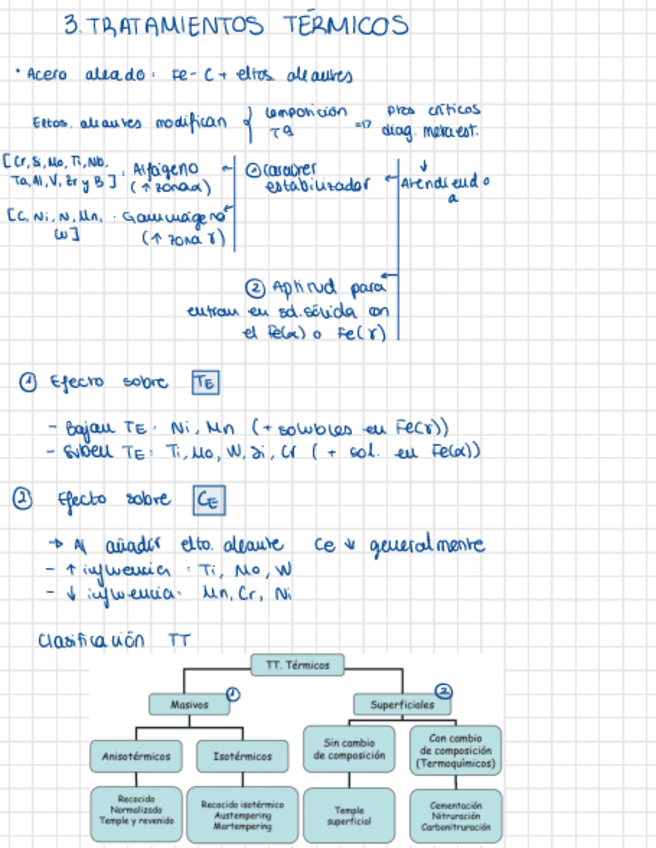 3. TRATAMIENTOS TÉRMICOS
• Acero aleado: Fe-C + eltos aleantes
Eltos. aleantes modifican { composición Tª => ptos críticos diag. metaest.
↓
Atendiendo a
① carácter estabilizador
[Cr, Si, Mo, Ti, Nb, Ta, Al, V, Zr y B]: Alfágeno (↑ zona α)
[C, Ni, N, Mn, W]: Gammágeno (↑ zona γ)
② Aptitud para
entrar en sd. sólida con
el Fe(α) o Fe(γ)
① Efecto sobre TE
- Bajan TE: Ni, Mn (+ solubles en Fe(γ))
- Suben TE: Ti, Mo, W, Si, Cr (+ sol. en Fe(α))
② Efecto sobre CE
→ Al añadir elto. aleante Ce ↓ generalmente
- ↑ influencia: Ti, Mo, W
- ↓ influencia: Mn, Cr, Ni
Clasificación TT
TT. Térmicos
Masivos ①
Superficiales ②
Anisotérmicos
Isotérmicos
Sin cambio
de composición
Con cambio
de composición
(Termoquímicos)
Recocido
Normalizado
Temple y revenido
Recocido isotérmico
Austempering
Martempering
Temple
superficial
Cementación
Nitruración
Carbonitruración